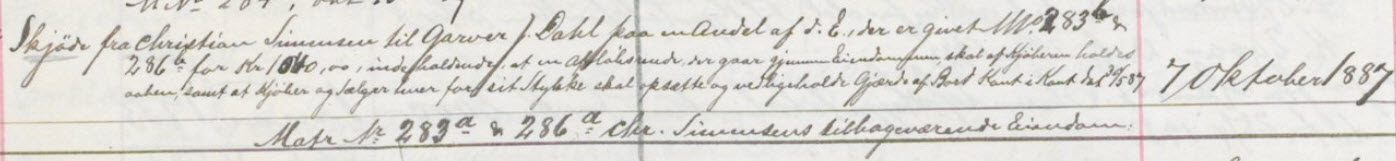 Skjøde fra Christian Simensen til Garver J. Dahl paa en Andel af d. E., der er givet Mno 283b &
286b for Kr 1040,00, indeholdende, at en Afløbsrende, der gaar gjennem Eiendommen skal af Kjøberen holdes
aaben, samt at Kjøber og Sælger hver for sit Stykke skal opsætte og vedligeholde Gjærde af Bord Kant i Kant dat. 87 7 Oktober 1887
Matr No 283a & 286a Chr. Simensens tilbageværende Eiendom.